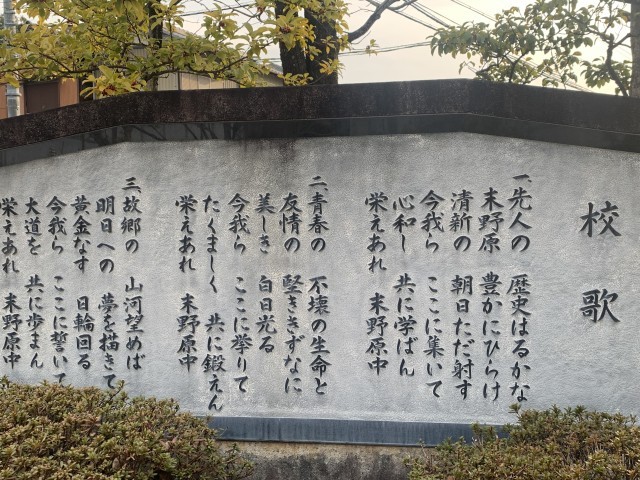 校歌
一、先人の 歴史はるかな
末野原 豊かにひらけ
清新の 朝日ただ射す
今我ら ここに集いて
心和し 共に学ばん
栄えあれ 末野原中
二、青春の 不壊の生命と
友情の 堅ききずなに
美しき 白日光る
今我ら ここに挙りて
たくましく 共に鍛えん
栄えあれ 末野原中
三、故郷の 山河望めば
明日への 夢を描きて
黄金なす 日輪回る
今我ら ここに誓いて
大道を 共に歩まん
栄えあれ 末野原中